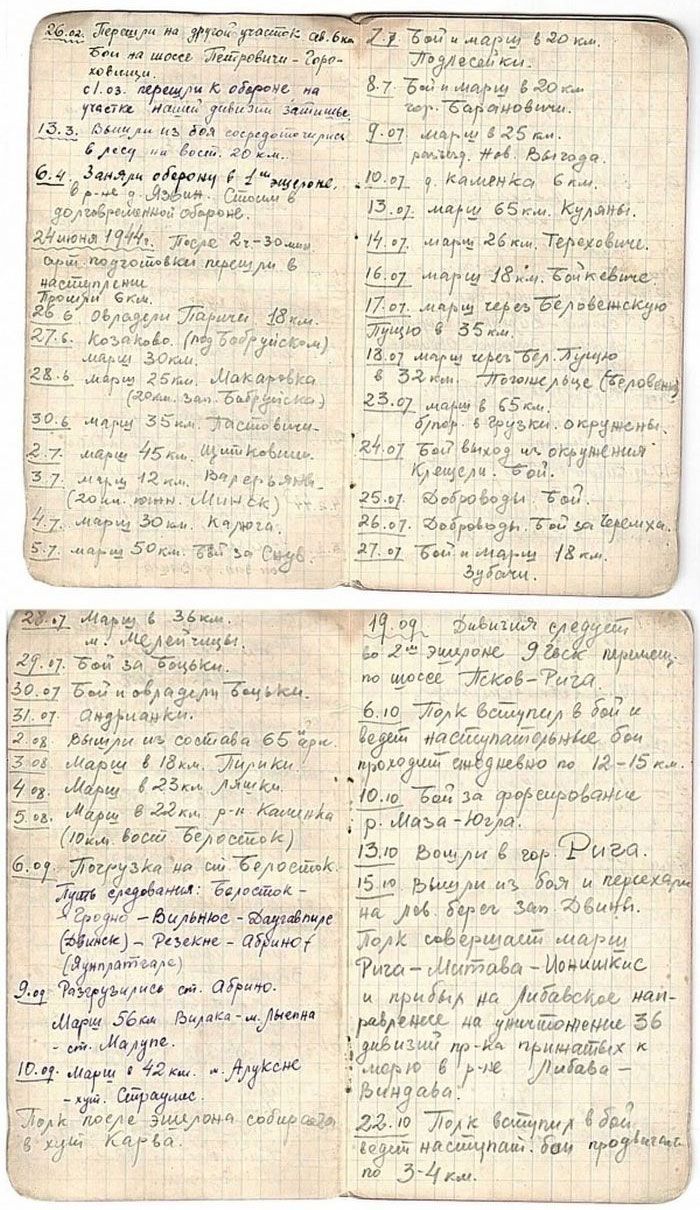 26.02. Перешли на другой участок св. 6 км
Бои на шоссе Петровичи - Горо-
ховищи.
с 1.03. перешли к обороне на
участке нашей дивизии затишье.
13.3. Вышли из боя сосредоточились
в лесу на вост. 20 км.
6.4. Заняли оборону в 1ом эшероне.
в р-не д. Язвин. Стоим в
долговременной обороне.
24 июня 1944г. После 2ч-30 мин
арт. подготовки перешли в
наступление
Прошли 6 км.
26 6 Овладели Паричи 18 км.
27.6. Козаково. (под Бобруйском)
марш 30 км.
28.6 марш 25 км. Макаровка
(20 км. зап. Бобруйска)
30.6 марш 35 км. Пастовичи-
2.7. марш 45 км. Щитковичи.
3.7. марш 12 км. Валерьяны-
(20 км. южн. Минск)
4.7. марш 30 км. Калюга.
5.7. марш 50 км. Бой за Снув.
7.7 Бой и марш в 20 км.
Подлесейки.
8.7. Бой и марш в 20 км
гор. Барановичи.
9.07 марш в 25 км.
Нов. Выгода.
10.07 д. Каменка 6 км.
13.07 марш 65 км. Куляны.
14.07 марш 26 км. Тереховиче.
16.07 марш 18 км. Бойкевиче.
17.07 марш через Беловежскую
Пущю в 35 км.
18.07 марш через Бел. Пущю
в 32 км. Погожельце (Беловеж)
23.07 марш в 65 км.
в Грузки. окружены.
24.07 Бой выход из окружения
Клещели. Бой.
25.07 Доброводы. Бой.
26.07. Доброводы. Бой за Черемха.
27.07 Бой и Марш 18 км.
Зубачи.
28.07 Марш в 36 км.
м. Мелейчицы.
29.07. Бой за Боцьки.
30.07 Бой и овладели Боцьки.
31.07 Андрианки.
2.08. Вышли из состава 65й арм.
3.08 Марш в 18 км. Пилики.
4 08 Марш в 23 км Ляшки.
5.08. Марш в 22 км р-н Каменка
(10 км. вост Белосток)
6.09. Погрузка на ст Белосток.
Путь следования: Белосток -
- Гродно - Вильнюс - Даугавпилс
(Двинск) - Резекне - Абрино
(Яунплатгале)
9.09 Разгрузились ст. Абрино.
Марш 56 км Вилака - м. Лиепна
- ст. Малупе.
10.09. Марш в 42 км. м. Алуксне
- хут. Страулис.
Полк после эшерона собирается
в хут Карва.
19.09 Дивизия следует
во 2ом эшероне 98ск перемещ.
по шоссе Псков-Рига.
6.10 Полк вступил в бой и
ведет наступательные бои
проходит ежедневно по 12-15 км.
10.10 Бой за форсирование
р. Маза-Югла.
13.10 Вошли в гор. Рига.
15.10 Вышли из боя и переехали
на лев. берег зап. Двины.
Полк совершает марш
Рига - Митава - Ионишкис
и прибыл на Либавское нап-
равление на уничтожение 36
дивизий пр-ка прижатых к
морю в р-не Либава -
Виндава.
22.10 Полк вступил в бой
ведет наступат. бои продвигаясь
по 3-4 км.